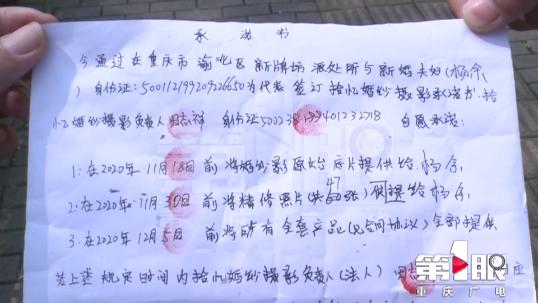 承诺书
今通过在重庆市渝北区新牌坊派处所与新婚夫妇(杨余
)身份证:500112199209226650为代表签订拾忆婚纱摄影承诺书.拾
忆婚纱摄影负责人田志祥 身份证500238199401232718 自愿承诺:
1:在2020年11月18日前将婚纱影原始底片提供给杨余,
47
2:在2020年11月30日前将精修照片(共 张)提给杨余,
3:在2020年12月5日前将所有全套产品(见合同协议)全部提供
若上述规定时间内拾忆婚纱摄影负责人(法人)田
第1眼
重庆广电